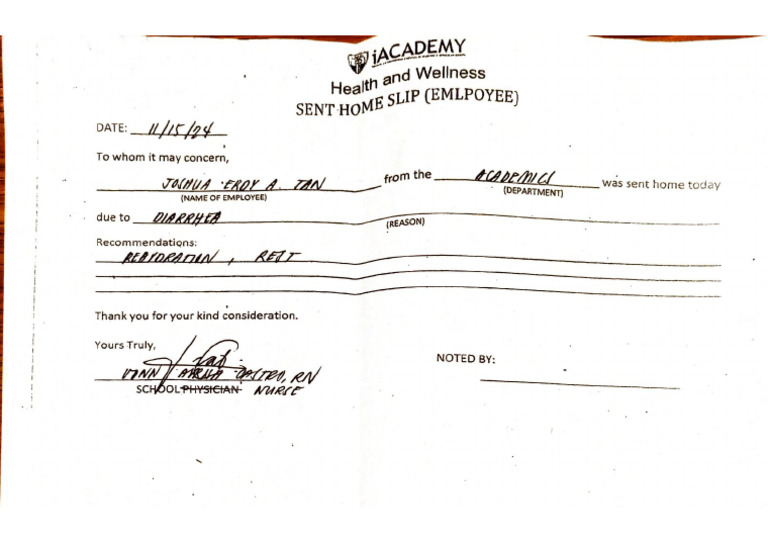 iACADEMY
Health and Wellness
SENT HOME SLIP (EMLPOYEE)
DATE: 11/15/24
To whom it may concern,
JOSHUA ERDY A. TAN from the ACADEMICS was sent home today
(NAME OF EMPLOYEE) (DEPARTMENT)
due to DIARRHEA
(REASON)
Recommendations:
REHYDRATION, REST
Thank you for your kind consideration.
Yours Truly,
CASTRO, RN
SCHOOL PHYSICIAN NURSE
NOTED BY: